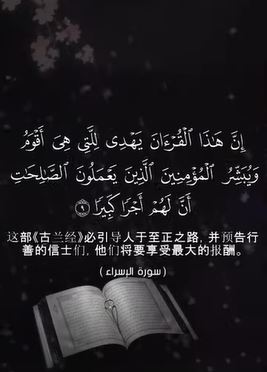 إِنَّ هَٰذَا ٱلْقُرْءَانَ يَهْدِى لِلَّتِى هِىَ أَقْوَمُ
وَيُبَشِّرُ ٱلْمُؤْمِنِينَ ٱلَّذِينَ يَعْمَلُونَ ٱلصَّٰلِحَٰتِ
أَنَّ لَهُمْ أَجْرًا كَبِيرًا ٩
这部《古兰经》必引导人于至正之路, 并预告行
善的信士们, 他们将要享受最大的报酬。
( سورة الإسراء )